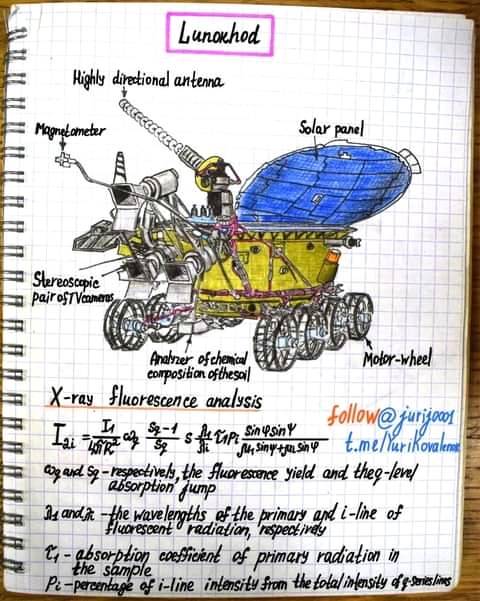 Lunokhod
Highly directional antenna
Magnetometer
Solar panel
Stereoscopic
pair of TV cameras
Analyzer of chemical
composition of the soil
Motor-wheel
X-ray fluorescence analysis
follow@jurij0001
t.me/YuriKovalenok
I₂ᵢ = I₁/4πR² ω_q (S_q-1)/S_q s λ₁/λᵢ τ₁pᵢ sinφ sinψ / (μ₁ sinψ+μ₂ᵢ sinφ)
ω_q and S_q - respectively, the fluorescence yield and the q-level
absorption jump
λ₁ and λᵢ - the wavelengths of the primary and i-line of
fluorescent radiation, respectively
τ₁ - absorption coefficient of primary radiation in
the sample
Pi - percentage of i-line intensity from the total intensity of q-series lines